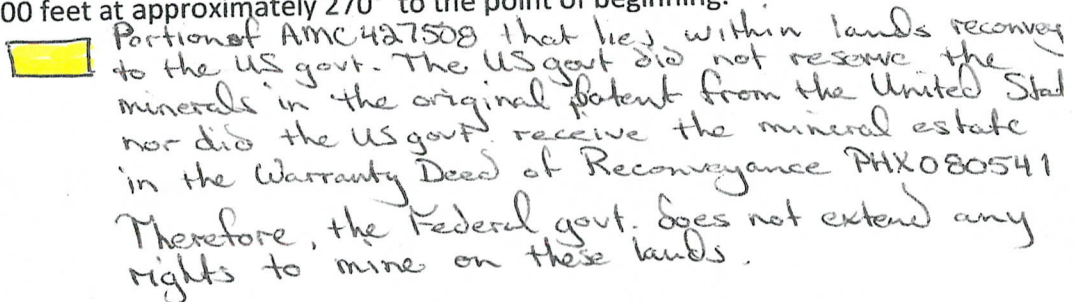 00 feet at approximately 270° to the point of beginning.
Portion of AMC427508 that lies within lands reconvey
to the US govt. The US govt did not reserve the
minerals in the original patent from the United Stat
nor did the US govt receive the mineral estate
in the Warranty Deed of Reconveyance PHX080541
Therefore, the Federal govt. does not extend any
rights to mine on these lands.